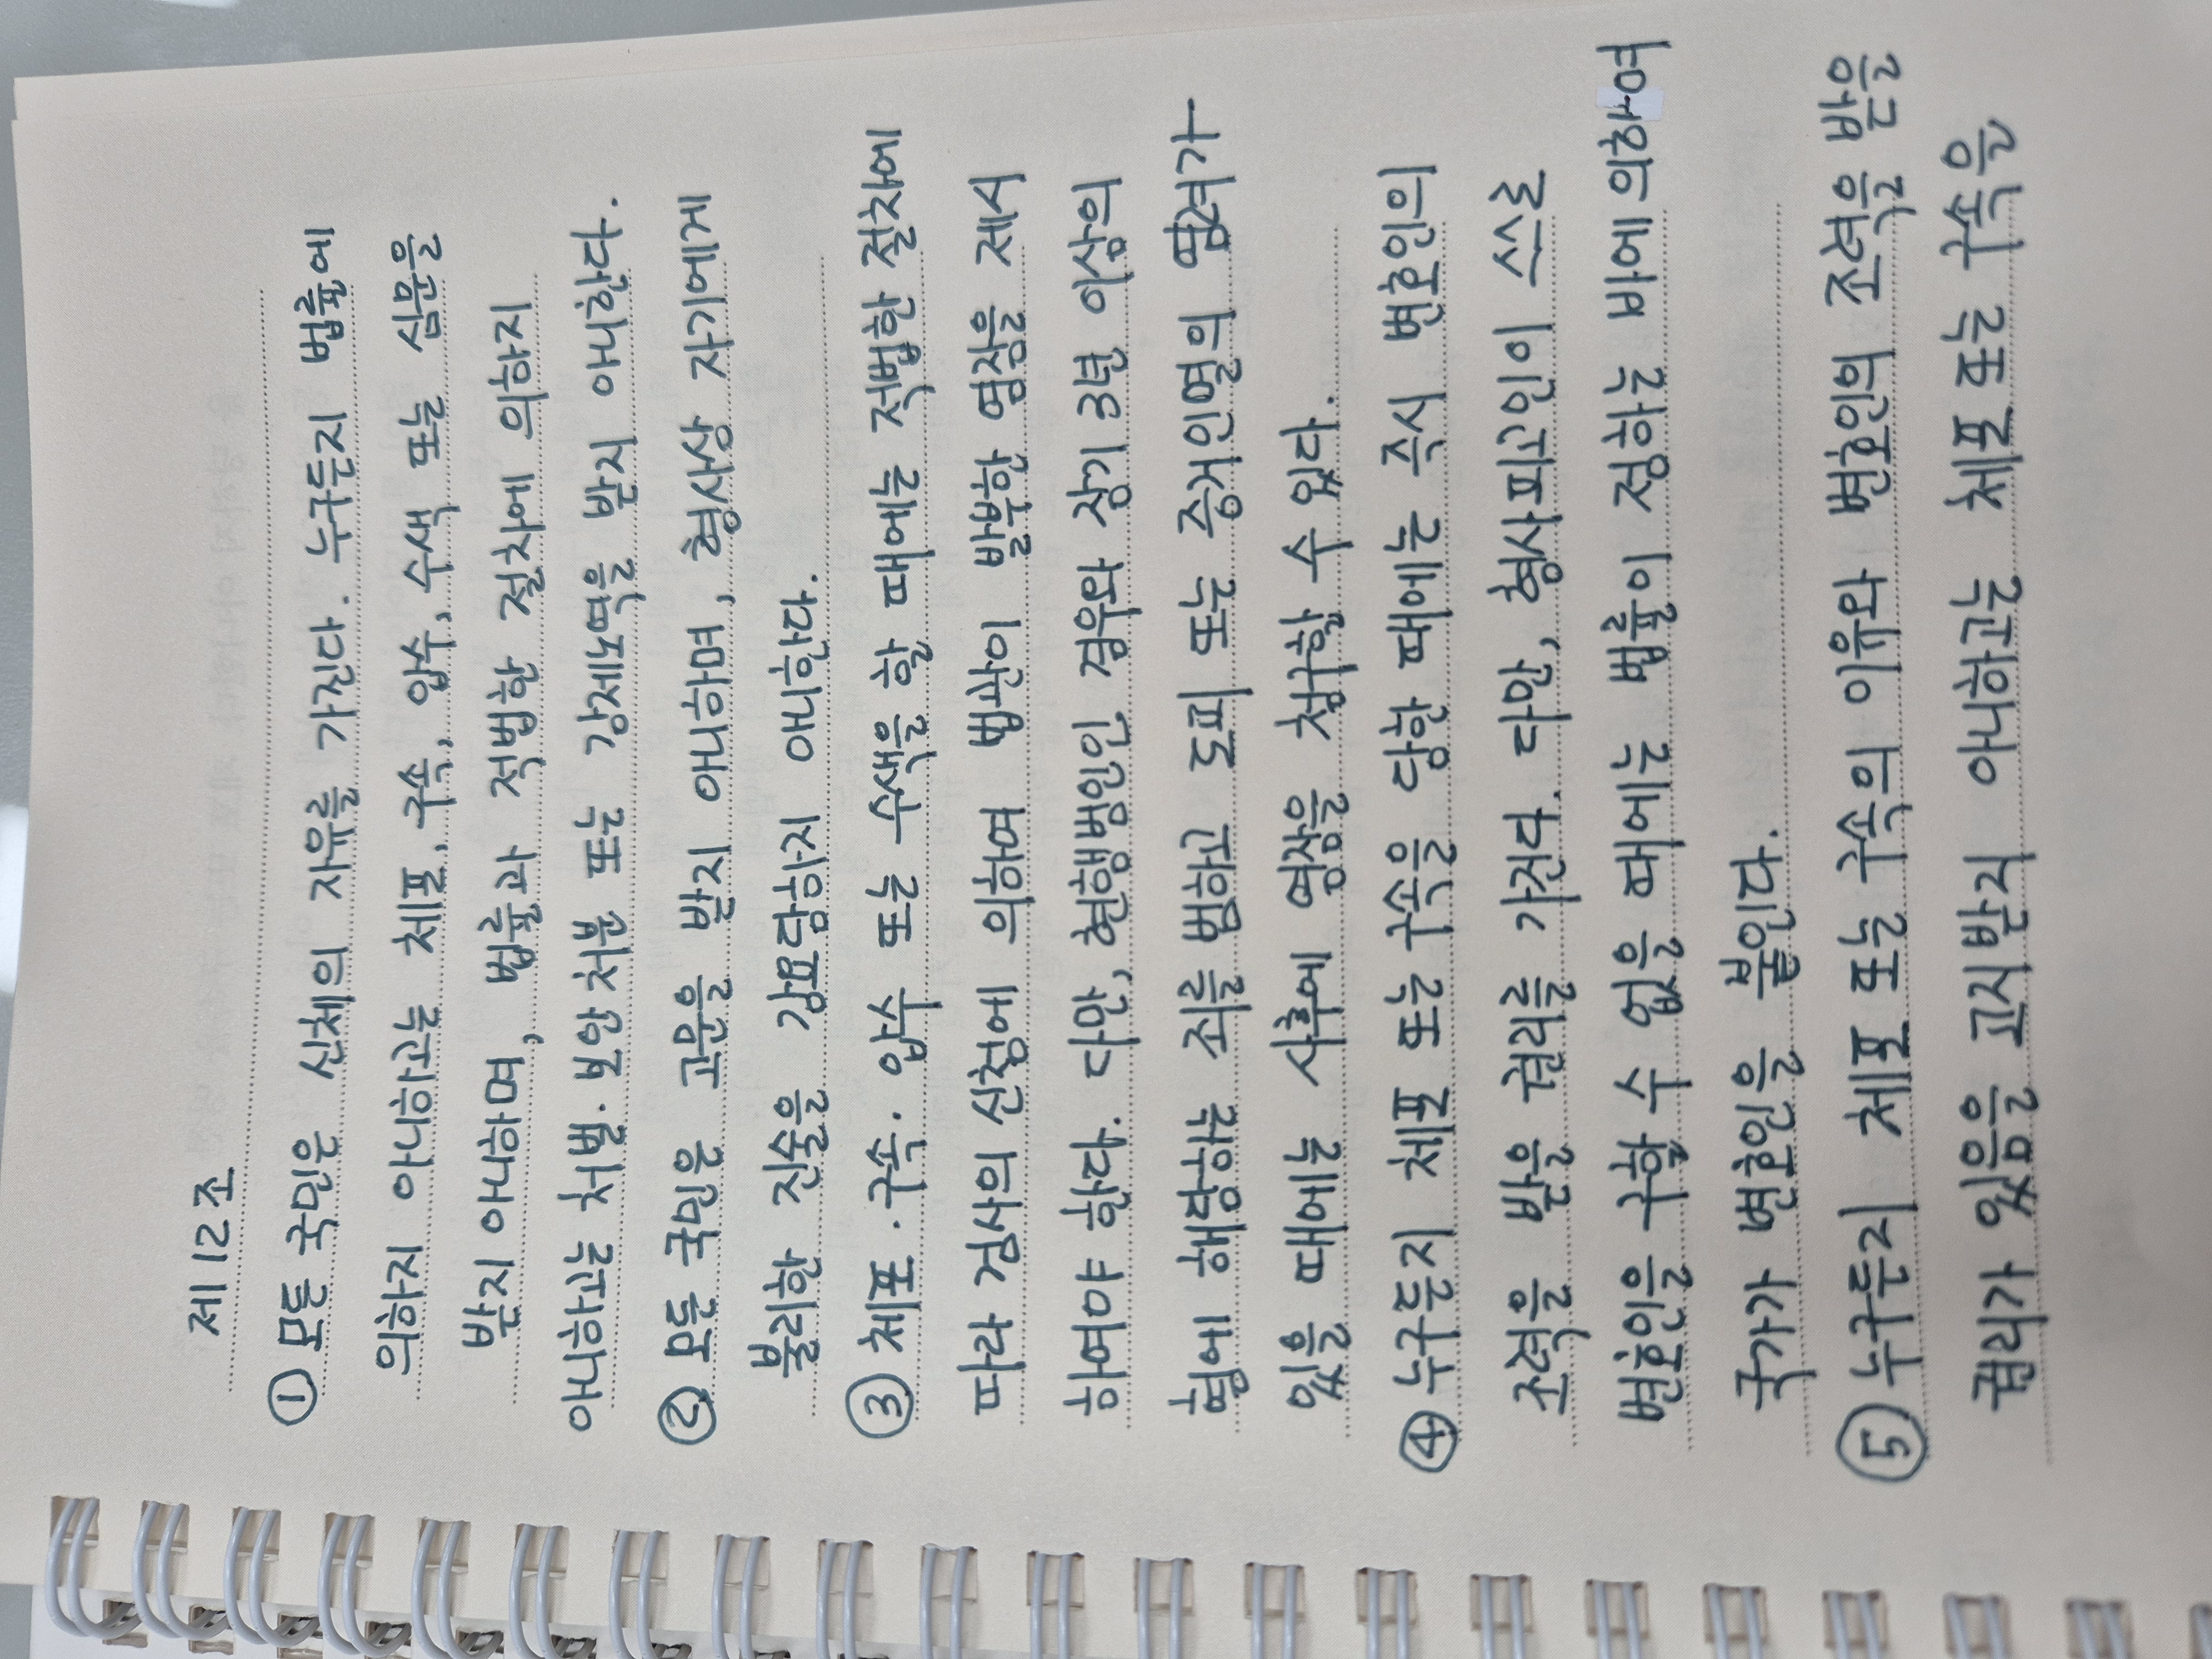 제12조
① 모든 국민은 신체의 자유를 가진다. 누구든지 법률에
의하지 아니하고는 체포, 구속, 압수, 수색 또는 심문을
받지 아니하며, 법률과 적법한 절차에 의하지
아니하고는 처벌·보안처분 또는 강제노역을 받지 아니한다.
② 모든 국민은 고문을 받지 아니하며, 형사상 자기에게
불리한 진술을 강요당하지 아니한다.
③ 체포·구속·압수 또는 수색을 할 때에는 적법한 절차에
따라 검사의 신청에 의하여 법관이 발부한 영장을 제시
하여야 한다. 다만, 현행범인인 경우와 장기 3년 이상의
형에 해당하는 죄를 범하고 도피 또는 증거인멸의 염려가
있을 때에는 사후에 영장을 청구할 수 있다.
④ 누구든지 체포 또는 구속을 당한 때에는 즉시 변호인의
조력을 받을 권리를 가진다. 다만, 형사피고인이 스스로
변호인을 구할 수 없을 때에는 법률이 정하는 바에 의하여
국가가 변호인을 붙인다.
⑤ 누구든지 체포 또는 구속의 이유와 변호인의 조력을 받을
권리가 있음을 고지받지 아니하고는 체포 또는 구속을